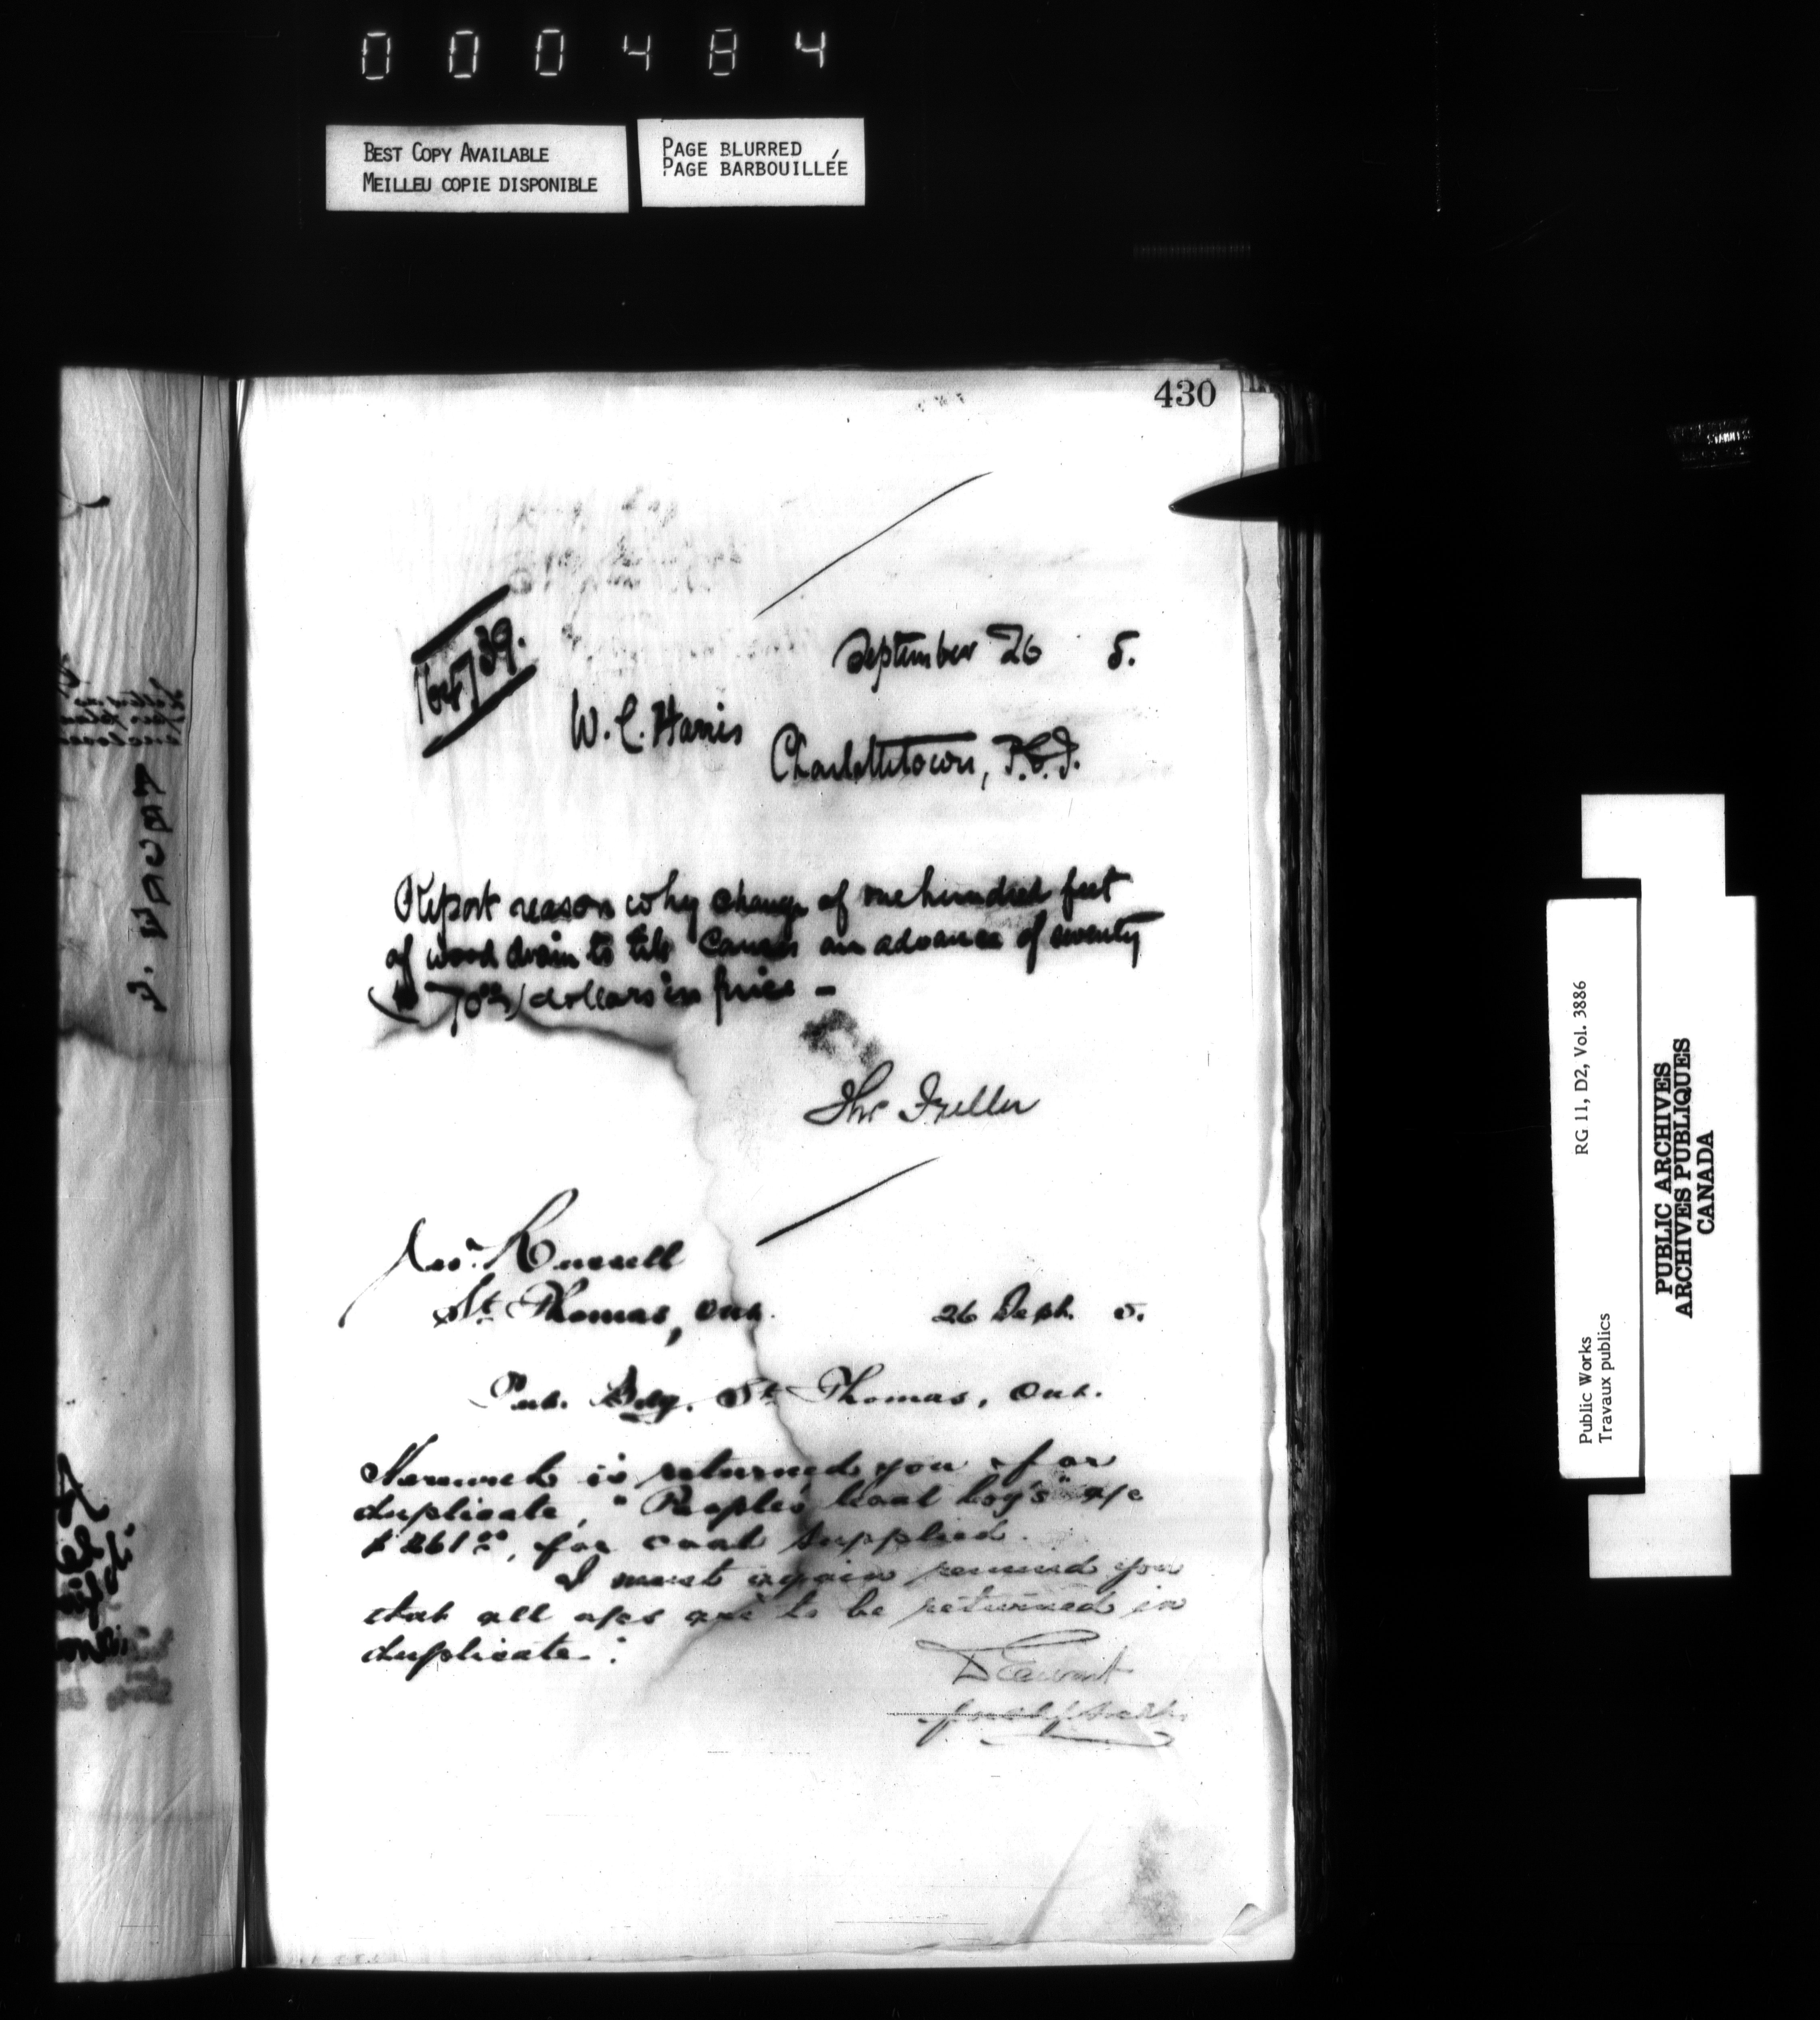 000484
BEST COPY AVAILABLE
MEILLEU COPIE DISPONIBLE
PAGE BLURRED
PAGE BARBOUILLÉE
430
September 26 5.
39.
W. C. Harris
Charlottetown, P.E.I.
Report reason why change of one hundred feet
of wood drain to tile causes an advance of seventy
70 00) dollars in price –
Thos Fuller
Russell
St. Thomas, Ont.
26 Sept. 5.
Pub. Bdg. St. Thomas, Ont.
Herewith is returned you for
duplicate, "Peoples Coal Coy's" a/c
$261 00, for coal supplied.
I must again remind you
that all a/cs are to be returned in
duplicate.
D Ewart
RG 11, D2, Vol. 3886
Public Works
Travaux publics
PUBLIC ARCHIVES
ARCHIVES PUBLIQUES
CANADA